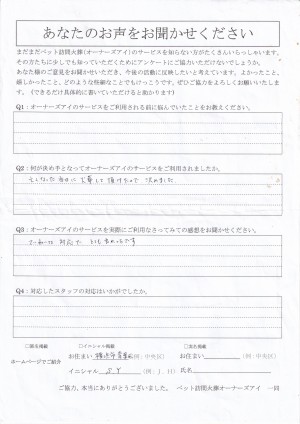 あなたのお声をお聞かせください
まだまだペット訪問火葬(オーナーズアイ)のサービスを知らない方がたくさんいらっしゃいます。
その方たちに少しでも知っていただくためにアンケートにご協力いただけないでしょうか。
あなた様のご意見をお聞かせいただき、今後の活動に反映したいと考えています。よかったこと、
嬉しかったこと、どのような些細なことでもけっこうです。ぜひご協力をよろしくお願いいたしま
す。(できるだけ具体的に書いていただけると助かります)
Q1：オーナーズアイのサービスをご利用される前に悩んでいたことをお教えください。
Q2：何が決め手となってオーナーズアイのサービスをご利用されましたか。
決めました
Q3：オーナーズアイのサービスを実際にご利用なさってみての感想をお聞かせください。
対応で とても
です
Q4：対応したスタッフの対応はいかがでしたか。
□匿名掲載 □イニシャル掲載 □実名掲載
ホームページでご紹介
お住まい 横浜市 (例：中央区) お住まい (例：中央区)
イニシャル S.Y (例：J．H) 氏名
ご協力、本当にありがとうございました。 ペット訪問火葬オーナーズアイ 一同